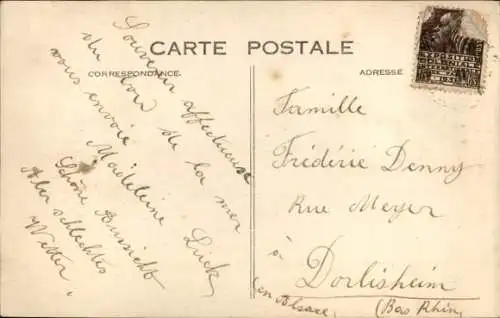 CARTE POSTALE
CORRESPONDANCE
ADRESSE
Souvenir affectueuse
du bord de la mer
vous envoie Madeleine Luck
Schöne Aussicht
Aber schlechtes
Wetter.
Famille
Frédéric Denny
Rue Meyer
à
Dorlisheim
en Alsace. (Bas Rhin)